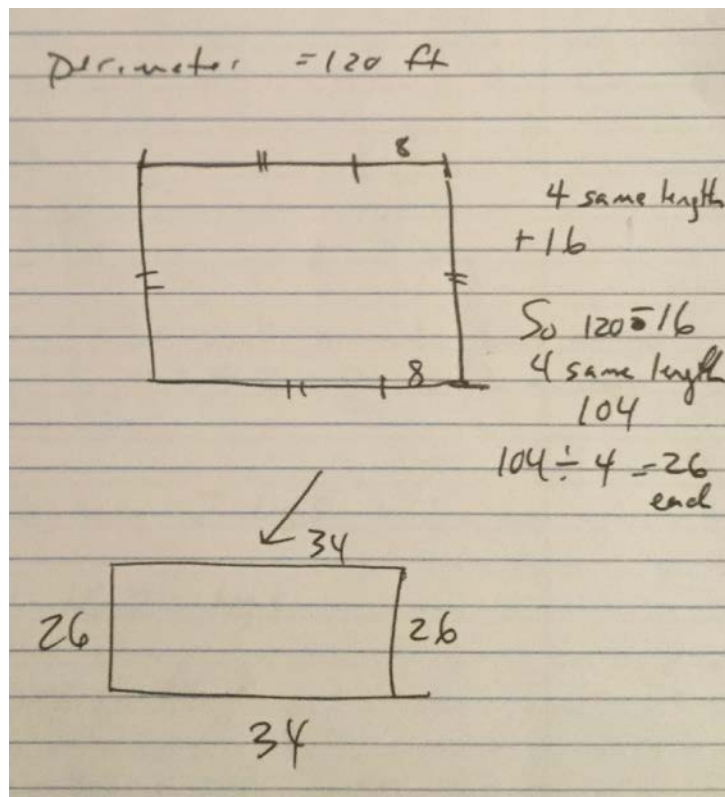 perimeter = 120 ft
8
4 same length
+ 16
So 120 - 16
8
4 same length
104
104 ÷ 4 = 26
each
34
26
26
34